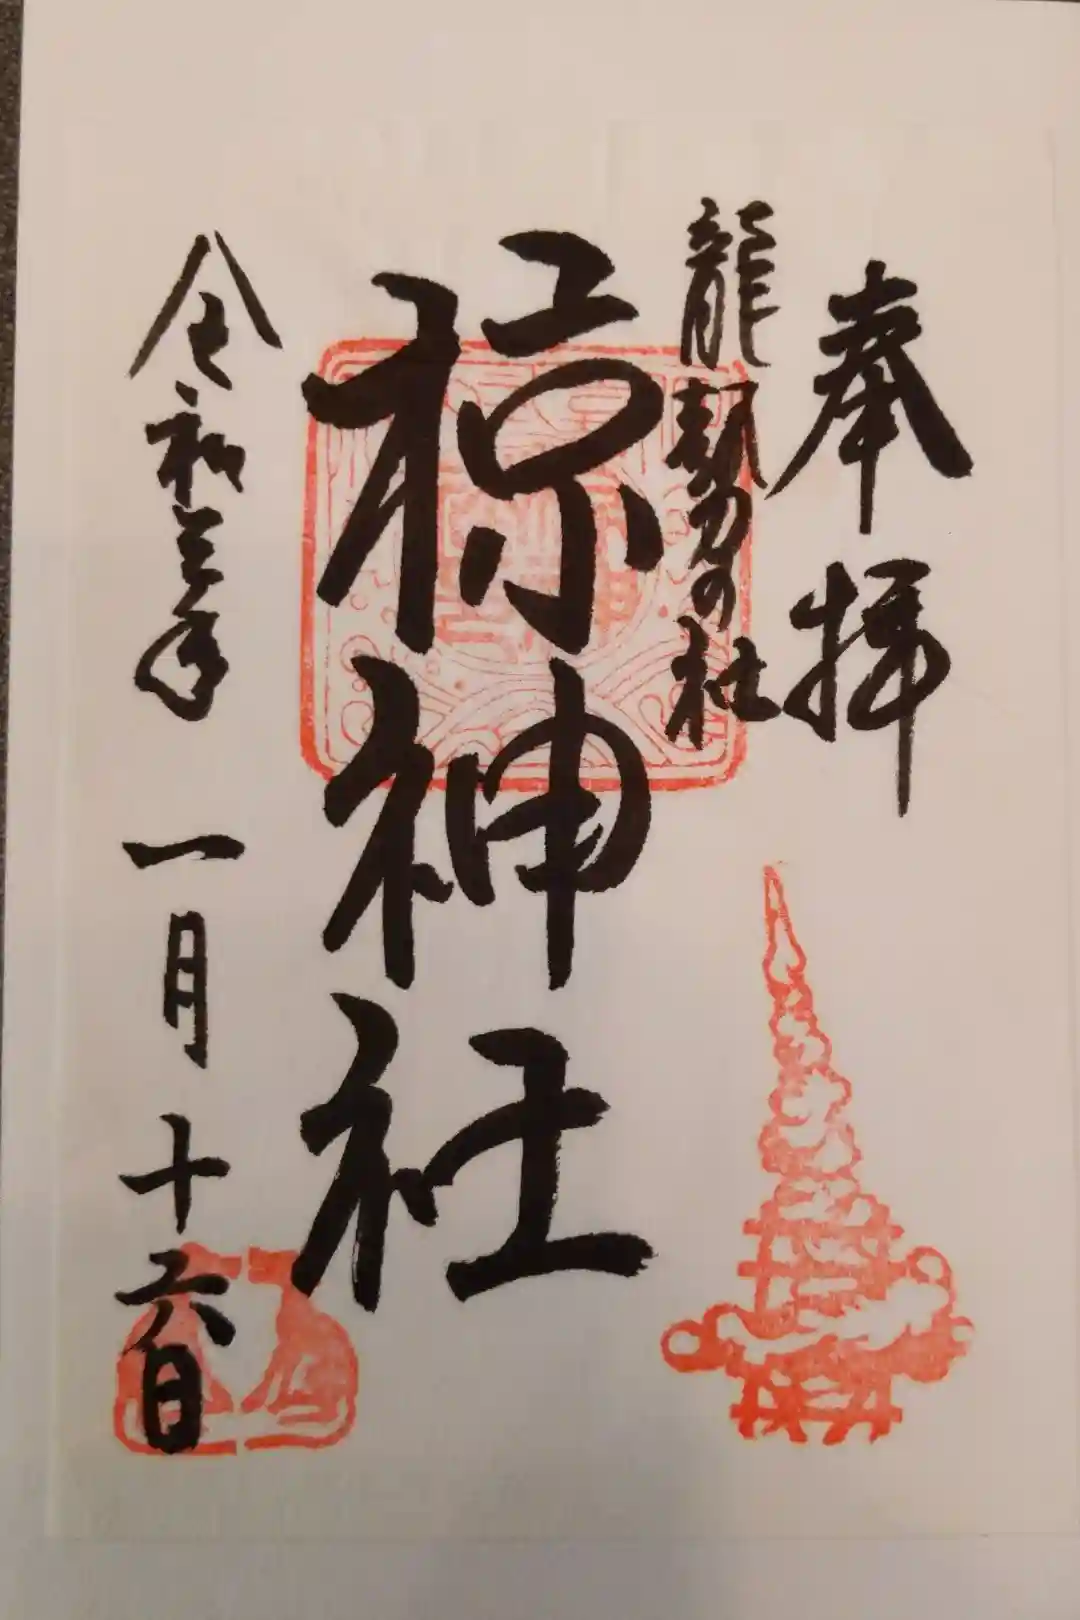 奉拝
龍勢の社
椋神社
令和三年 一月 十六日